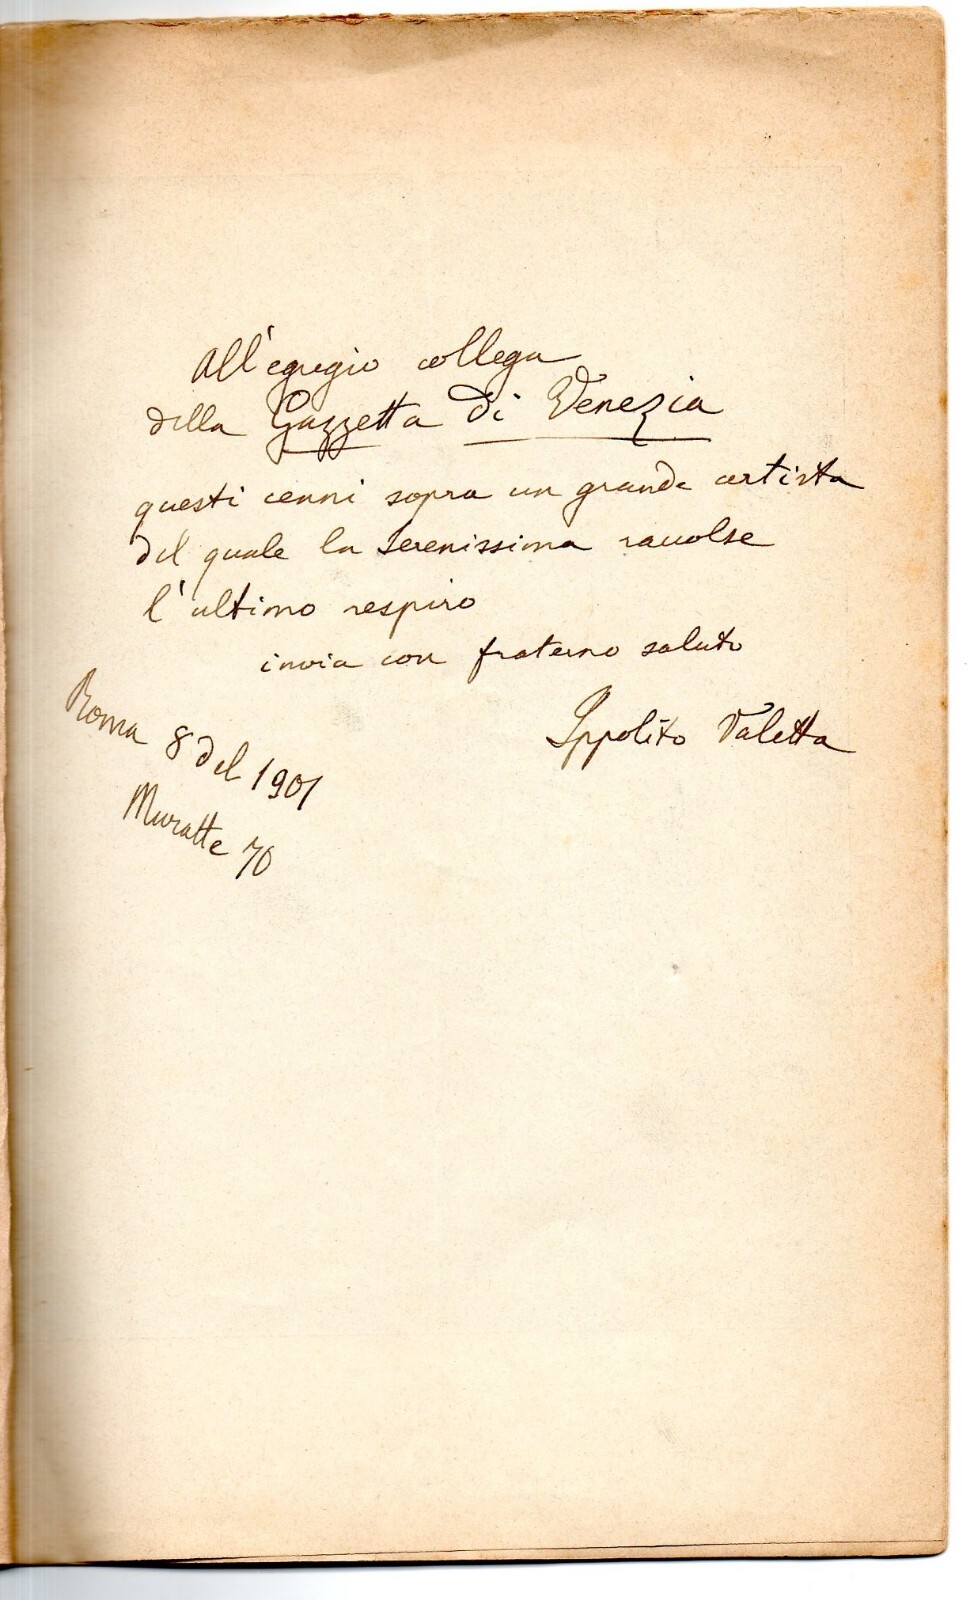 All'egregio collega
della Gazzetta di Venezia
questi cenni sopra un grande artista
del quale la Serenissima raccolse
l'ultimo respiro
invia con fraterno saluto
Ippolito Valetta
Roma 8 del 1901
Muratte 70